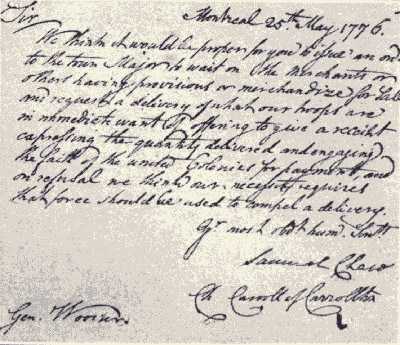 Sir Montreal 25th May 1776.
We think it would be proper for you to issue an ord
to the town Major to wait on the merchants or
others having provisions or merchandize for Sale
and request a delivery of what our troops are
in immediate want of offering to give a receipt
expressing the quantity delivered and engaging
the faith of the united Colonies for payment, and
on refusal we think our necessity requires
that force should be used to compel a delivery.
Yr. most obdt. humb. Servts.
Samuel Chase
Ch. Carroll of Carrollton
Gen. Wooster